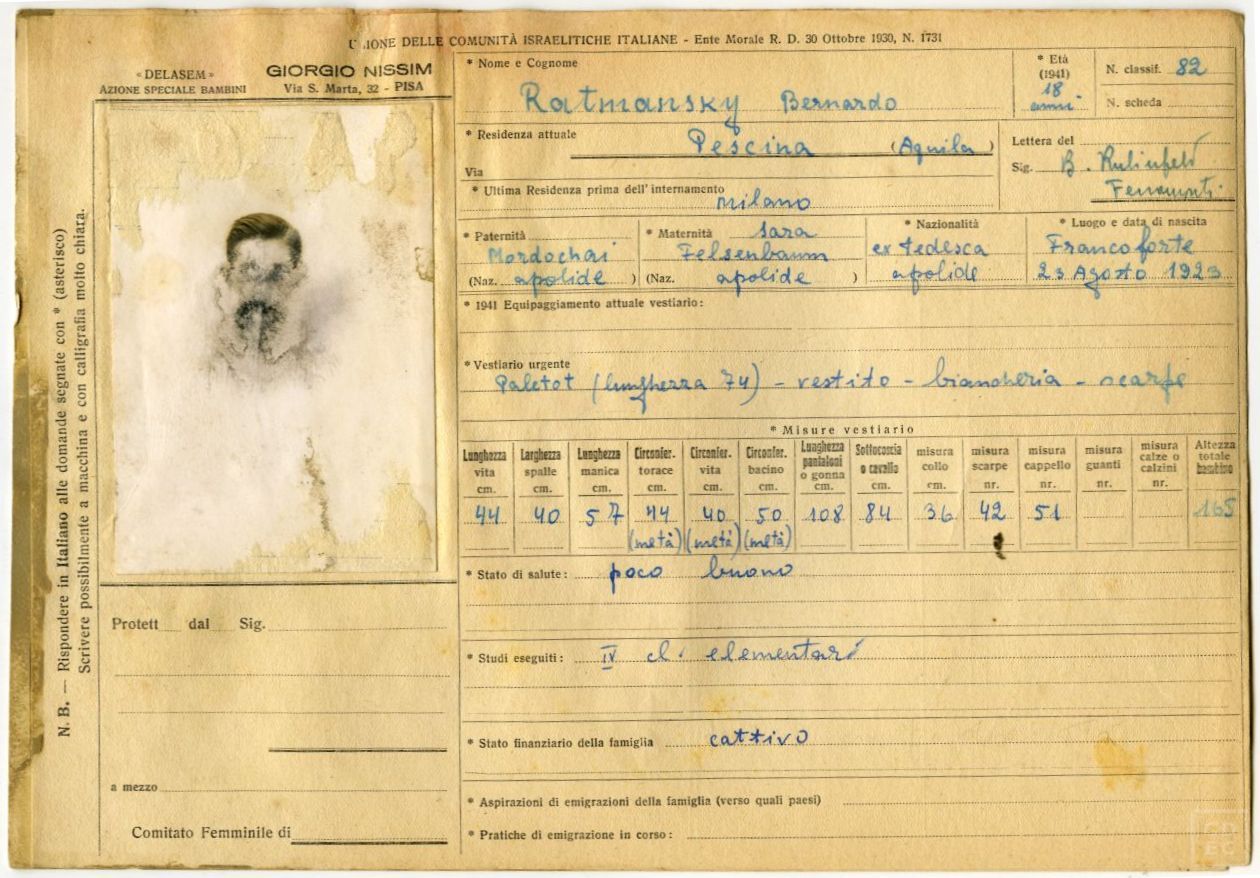 UNIONE DELLE COMUNITÀ ISRAELITICHE ITALIANE - Ente Morale R. D. 30 Ottobre 1930, N. 1731
« DELASEM »
AZIONE SPECIALE BAMBINI
GIORGIO NISSIM
Via S. Marta, 32 - PISA
N. B. — Rispondere in Italiano alle domande segnate con * (asterisco)
Scrivere possibilmente a macchina e con calligrafia molto chiara.
* Nome e Cognome
Ratmansky Bernardo
* Età
(1941)
18
anni
N. classif. 82
N. scheda
* Residenza attuale
Pescina (Aquila)
Via
Lettera del
Sig. B.
Ferramonti
* Ultima Residenza prima dell'internamento
milano
* Paternità
Mordochai
(Naz. apolide )
* Maternità Sara
Felsenbaum
(Naz. apolide )
* Nazionalità
ex tedesca
apolide
* Luogo e data di nascita
Francoforte
23 Agosto 1923
* 1941 Equipaggiamento attuale vestiario :
* Vestiario urgente
Paletot (lunghezza 74) - vestito - biancheria - scarpe
* Misure vestiario
Lunghezza vita cm. 44
Larghezza spalle cm. 40
Lunghezza manica cm. 57
Circonfer. torace cm. 44 (metà)
Circonfer. vita cm. 40 (metà)
Circonfer. bacino cm. 50 (metà)
Lunghezza pantaloni o gonna cm. 108
Sottocoscia o cavallo cm. 84
misura collo cm. 36
misura scarpe nr. 42
misura cappello nr. 51
misura guanti nr.
misura calze o calzini nr.
Altezza totale bambino 165
* Stato di salute : poco buono
* Studi eseguiti : IV cl. elementari
* Stato finanziario della famiglia cattivo
* Aspirazioni di emigrazioni della famiglia (verso quali paesi)
* Pratiche di emigrazione in corso :
Protett dal Sig.
a mezzo
Comitato Femminile di